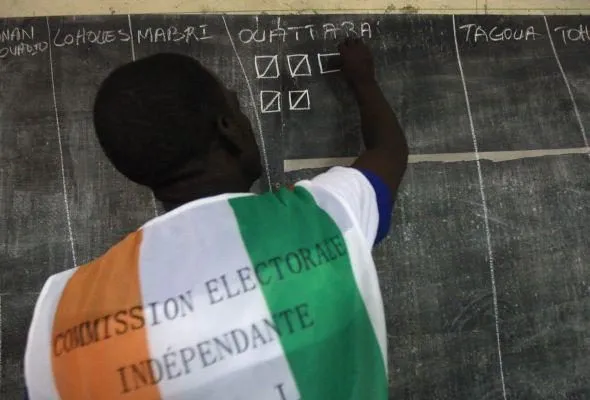 NAN LOHOUES MABRI OUATTARA TAGOUA TOH
COMMISSION ELECTORALE
INDÉPENDANTE